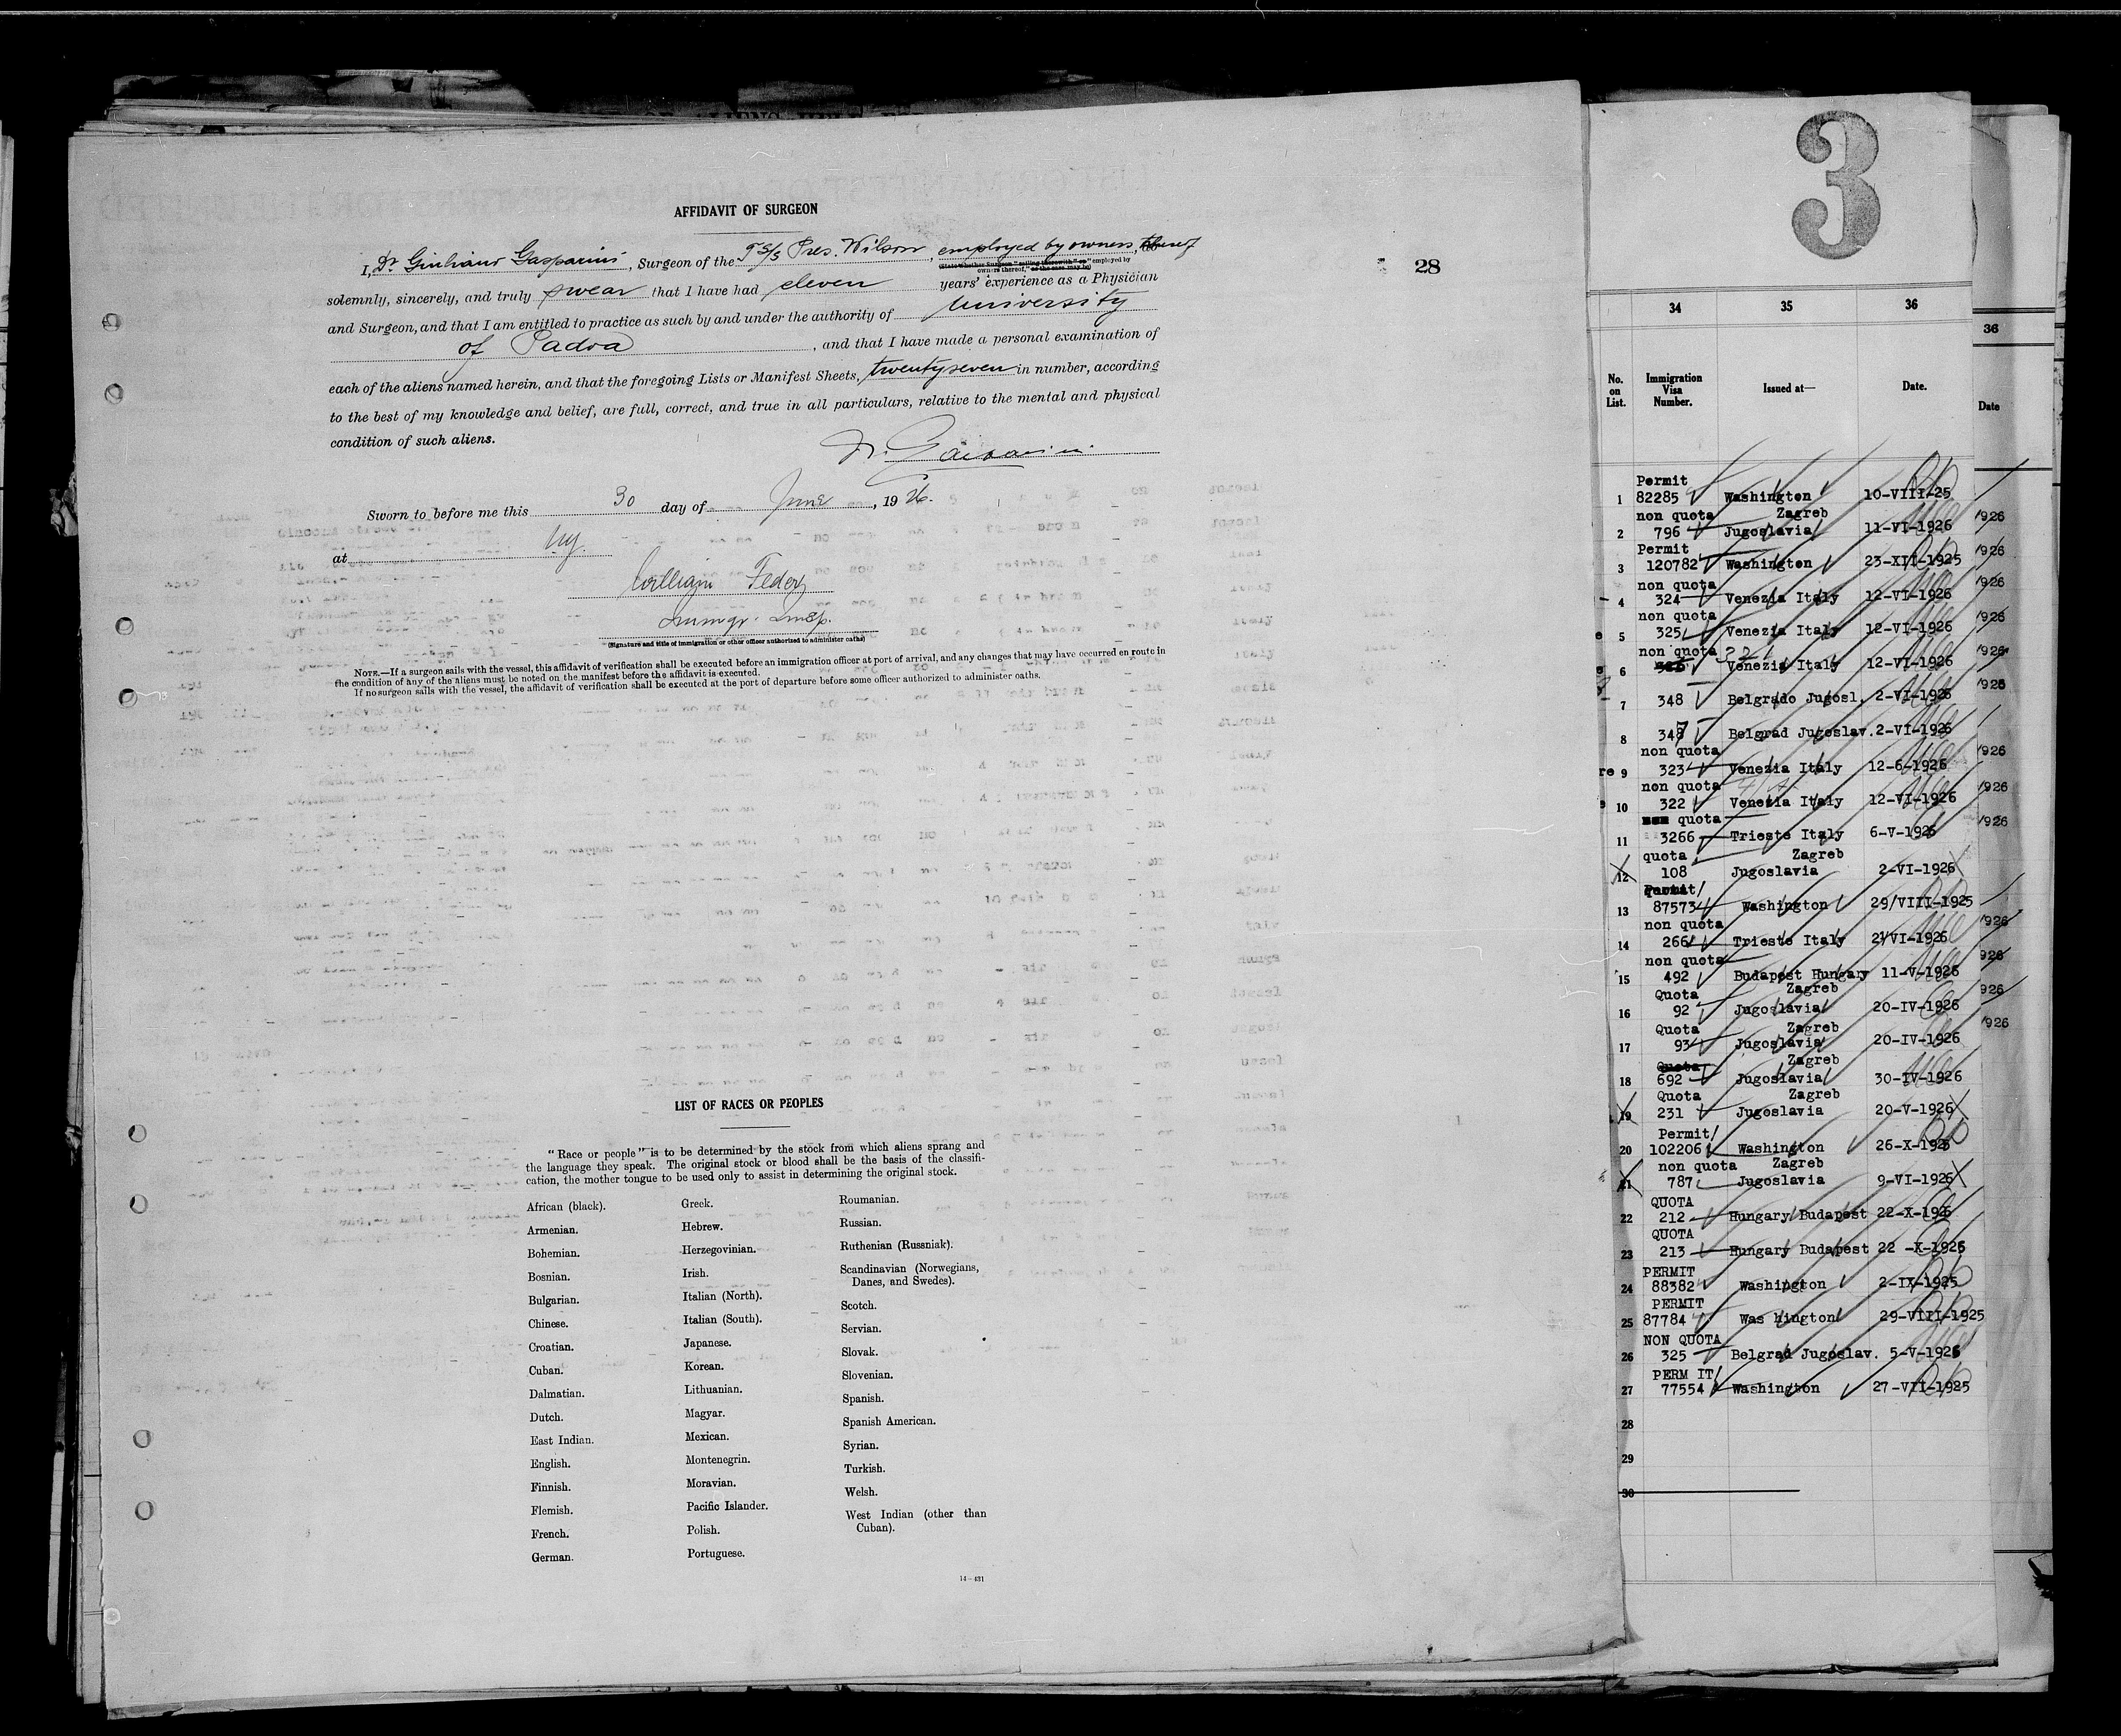 AFFIDAVIT OF SURGEON
I, Dr Giuliano Gasparini, Surgeon of the TSS Pres. Wilson, employed by owners, thereof
(State whether Surgeon "sailing therewith" or "employed by
owners thereof," as the case may be)
solemnly, sincerely, and truly swear that I have had eleven years' experience as a Physician
and Surgeon, and that I am entitled to practice as such by and under the authority of University
of Padova, and that I have made a personal examination of
each of the aliens named herein, and that the foregoing Lists or Manifest Sheets, twentyseven in number, according
to the best of my knowledge and belief, are full, correct, and true in all particulars, relative to the mental and physical
condition of such aliens.
Dr. Gasparini
Sworn to before me this 30 day of June, 1926.
at NY.
William Feder
Immgr. Insp.
(Signature and title of immigration or other officer authorized to administer oaths)
NOTE.—If a surgeon sails with the vessel, this affidavit of verification shall be executed before an immigration officer at port of arrival, and any changes that may have occurred en route in
the condition of any of the aliens must be noted on the manifest before the affidavit is executed.
If no surgeon sails with the vessel, the affidavit of verification shall be executed at the port of departure before some officer authorized to administer oaths.
28
LIST OF RACES OR PEOPLES
"Race or people" is to be determined by the stock from which aliens sprang and
the language they speak. The original stock or blood shall be the basis of the classifi-
cation, the mother tongue to be used only to assist in determining the original stock.
African (black).
Armenian.
Bohemian.
Bosnian.
Bulgarian.
Chinese.
Croatian.
Cuban.
Dalmatian.
Dutch.
East Indian.
English.
Finnish.
Flemish.
French.
German.
Greek.
Hebrew.
Herzegovinian.
Irish.
Italian (North).
Italian (South).
Japanese.
Korean.
Lithuanian.
Magyar.
Mexican.
Montenegrin.
Moravian.
Pacific Islander.
Polish.
Portuguese.
Roumanian.
Russian.
Ruthenian (Russniak).
Scandinavian (Norwegians,
Danes, and Swedes).
Scotch.
Servian.
Slovak.
Slovenian.
Spanish.
Spanish American.
Syrian.
Turkish.
Welsh.
West Indian (other than
Cuban).
14—431
3
34 35 36
No. on List. Immigration Visa Number. Issued at— Date.
Permit
1 82285 Washington 10-VIII-25
non quota Zagreb
2 796 Jugoslavia 11-VI-1926
Permit
3 120782 Washington 23-XII-1925
non quota
4 324 Venezia Italy 12-VI-1926
non quota
5 325 Venezia Italy 12-VI-1926
non quota
6 Venezia Italy 12-VI-1926
7 348 Belgrado Jugosl. 2-VI-1926
8 347 Belgrad Jugoslav. 2-VI-1926
non quota
9 323 Venezia Italy 12-6-1926
non quota
10 322 Venezia Italy 12-VI-1926
quota
11 3266 Trieste Italy 6-V-1926
quota Zagreb
12 108 Jugoslavia 2-VI-1926
Permit/
13 87573 Washington 29/VIII-1925
non quota
14 266 Trieste Italy 2/VI-1926
non quota
15 492 Budapest Hungary 11-V-1926
Quota Zagreb
16 92 Jugoslavia 20-IV-1926
Quota Zagreb
17 93 Jugoslavia 20-IV-1926
Quota Zagreb
18 692 Jugoslavia 30-IV-1926
Quota Zagreb
19 231 Jugoslavia 20-V-1926
Permit/
20 102206 Washington 26-X-1925
non quota Zagreb
21 787 Jugoslavia 9-VI-1926
QUOTA
22 212 Hungary Budapest 22-X-1926
QUOTA
23 213 Hungary Budapest 22 -X-1926
PERMIT
24 88382 Washington 2-IX-1925
PERMIT
25 87784 Was hington 29-VIII-1925
NON QUOTA
26 325 Belgrad Jugoslav. 5-V-1926
PERM IT/
27 77554 Washington 27-VII-1925
28
29
30
36
Date